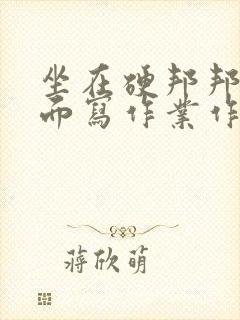 坐在硬邦邦
而寫作業作
蔣欣萌